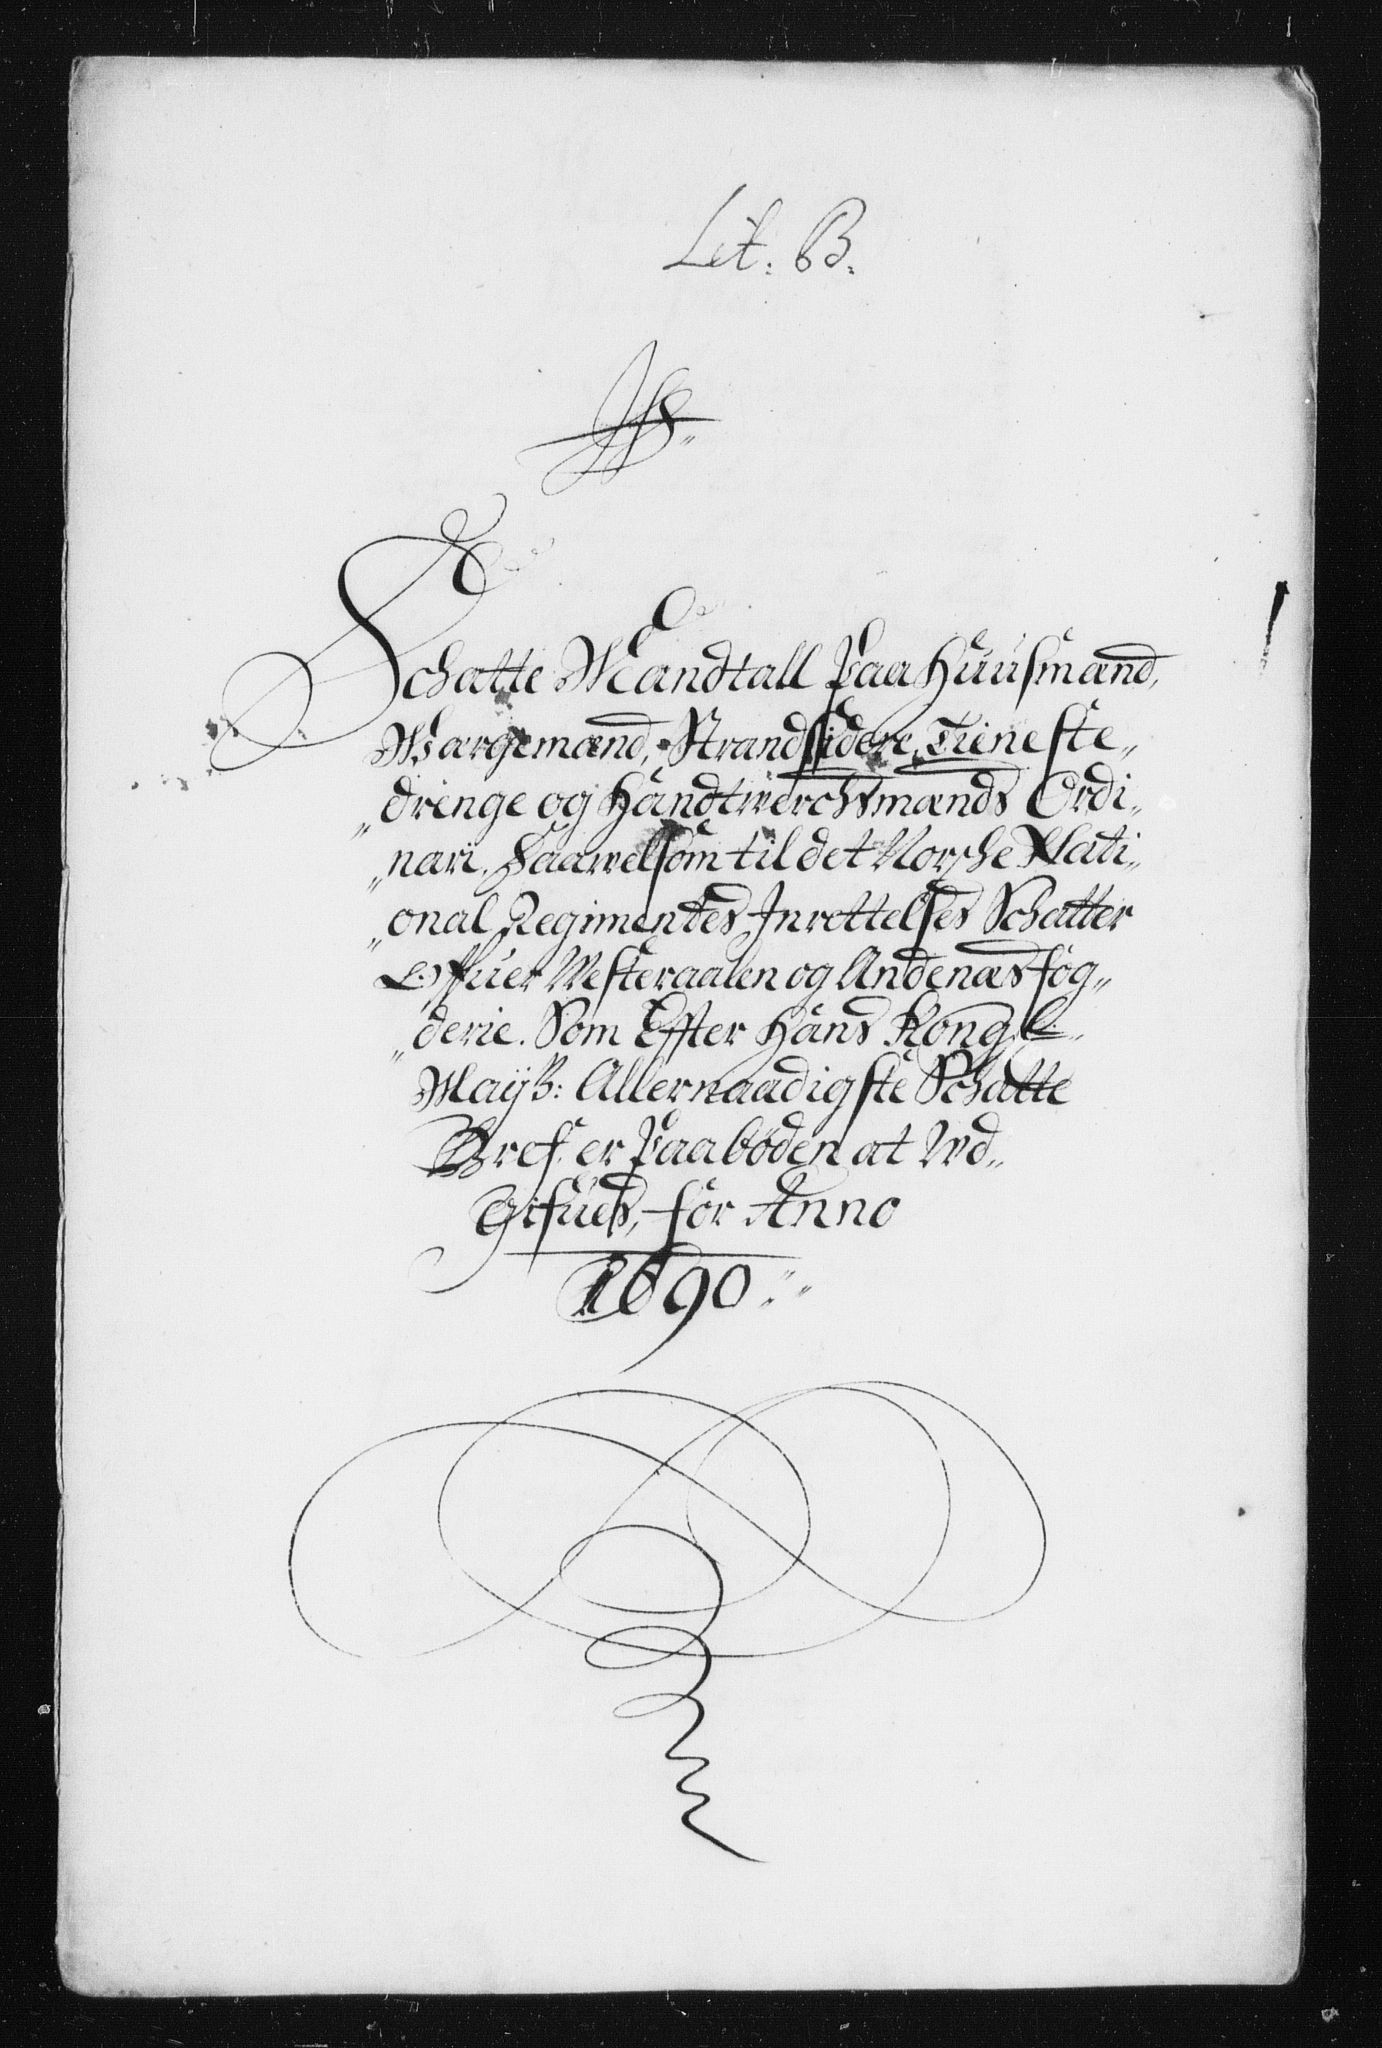 Lit: B.
Schatte Mandtall Paa Huusmænd,
Wargemænd, Strandsidere, Tieneste„
„drenge og Handtwerchsmænds Ordi„
„nari. Saawelsom til det Norsche Nati„
„onal Regimentes Inrettelses Schatter
Offuer Westeraalen og Andenæs fog„
„derie. Som Effter Hans Kongl.
Mayß: Allernaadigste Schatte
Bref. er Paabøden at Vd„
Gifues, for Anno
1690